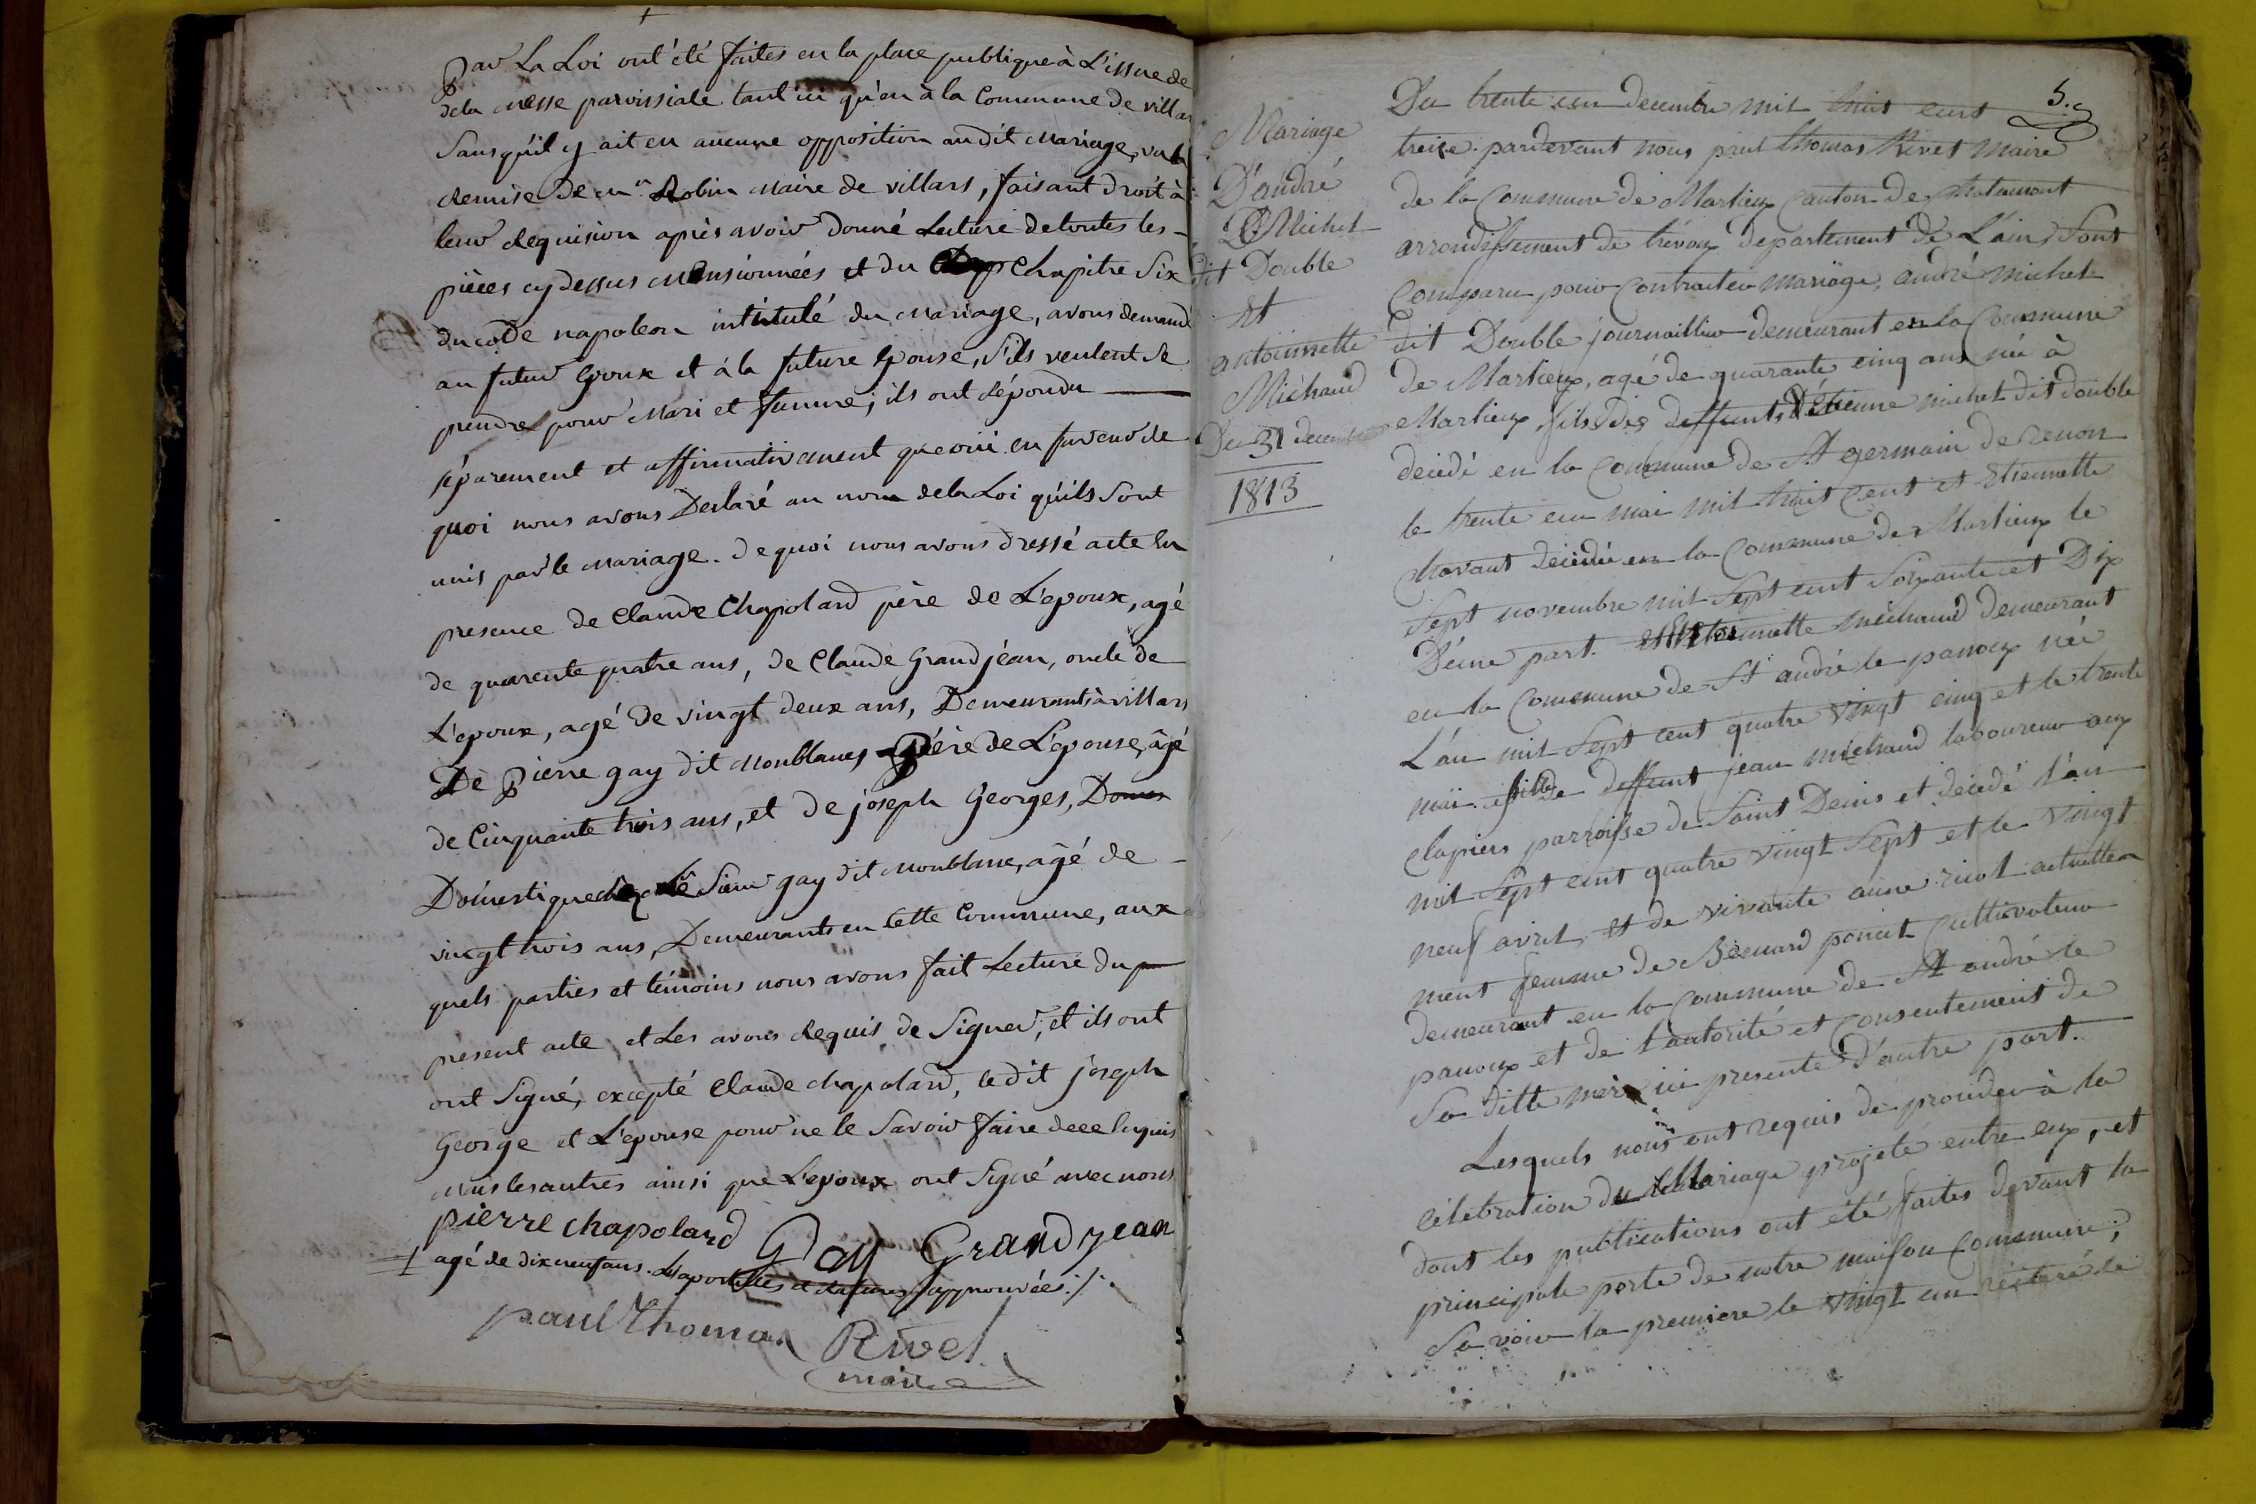 Par La Loi ont été faites en la place publique à L'issue de
dela Messe paroissiale tant ici qu'en à la Commune de villars
Sans qu'il y ait eu aucune opposition audit Mariage, vu la
Remise de Mr. Robin Maire de villars, faisant droit à
leur Requision après avoir Donné Lecture de toutes les -
pièces cydessus Mensionnées et du Chapitre Six
du code napoleon intitulé du Mariage, avons demandé
au futur Epoux et à la future Epouse, S'ils veulent Se
prendre pour Mari et femme; ils ont Répondu
Séparement et affirmativement que oui en faveur de
quoi nous avons Declaré au nom dela Loi qu'ils Sont
unis par le Mariage. De quoi nous avons dressé acte En
presence de Claude Chapoland père de L'epoux, agé
de quarente quatre ans, de Claude Grandjéan, oncle de
L'epoux, agé de vingt deux ans, Demeurants à villars
De Pierre gay dit Monblancs Père de L'epouse, âgé
de Cinquante trois ans, et de joseph Georges, Domes
Domestique chez le Sieur gay dit Monblanc, âgé de -
vingt trois ans, Demeurants en Cette Commune, aux
quels parties et témoins nous avons fait Lecture du
present acte et Les avons Requis de Signer, et ils ont
ont Signé, excepté Claude chapoland, ledit joseph
George et L'epouse pour ne le Savoir faire de ce Enquis
Mais les autres ainsi que L'epoux ont Signé avec nous
pierre chapoland Gay Grandjean
agé de dix neuf ans. Les apostilles et Ratures approuvées ./.
paul Thomas Rivet
maire
5.
Mariage
D'andré
Michet
dit Double
Et
antoinette
Michaud
Du 31 decembre
1813
Du trente un decembre mil huit cent
treize pardevant nous paul thomas Rivet Maire
de la Commune de Marlieux Canton de Chalamont
arrondissement de trévoux departement de L'ain, Sont
Comparu pour Contracter Mariage, andré Michet
dit Double journaillier demeurant en la Commune
de Marlieux, agé de quarante cinq ans née à
Marlieux, fils des deffunts D'étienne michet dit double
decedé en la Commune de St germain de renon
le trente un mai mil huit Cent et Etiennette
Chavant decedée en la Commune de Marlieux le
Sept novembre mil Sept cent Soixante et Dix
D'une part. et antoinette Michaud demeurant
en la Commune de St andré le panoux née
L'an mil Sept cent quatre vingt cinq et le trente
mai fille de deffunt jean michaud laboureur aux
Clapiers parroisse de Saint Denis et decedé l'an
mil Sept cent quatre vingt Sept et le vingt
neuf avril et de vivante anne actuelle
ment femme de Bernard poncet Cultivateur
demeurant en la Commune de St andré le
panoux et de l'autorité et Consentement de
Sa ditte mère ici presente D'autre part.
Lesquels nous ont requis de proceder à la
Célébration du Mariage projeté entre eux, et
dont les publications ont été faites devant la
principale porte de notre maison Commune;
Savoir la premiere le vingt un